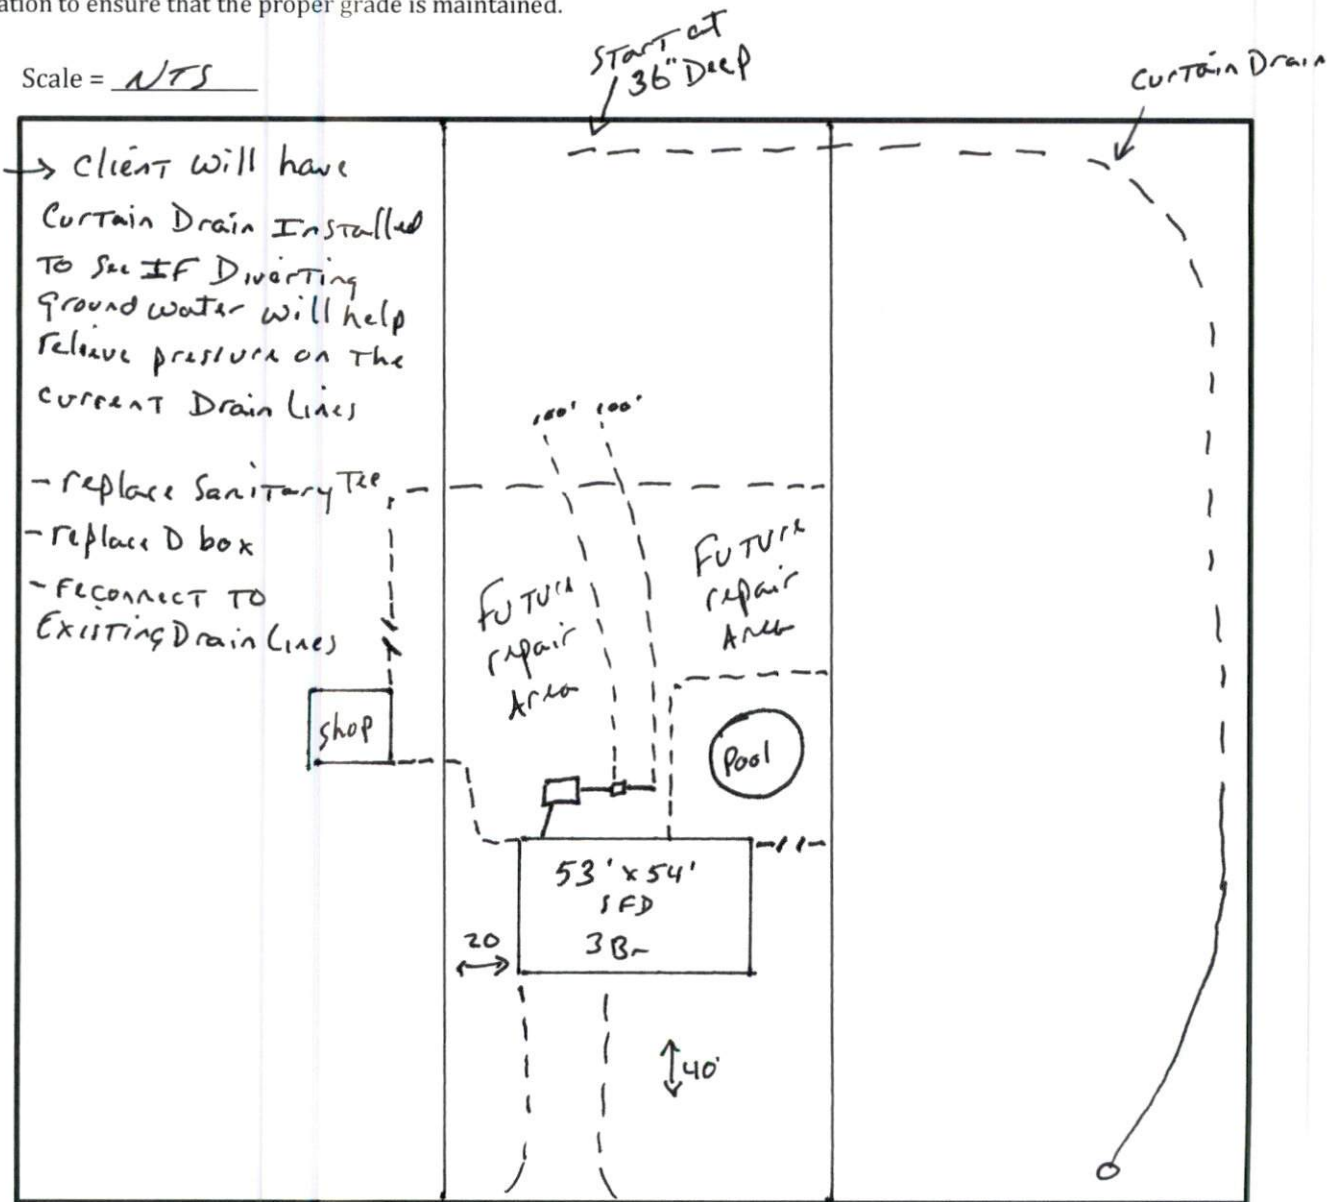 ation to ensure that the proper grade is maintained.
Scale = NTS
Start at
36" Deep
Curtain Drain
→ Client will have
Curtain Drain Installed
To See IF Diverting
Ground water will help
relieve pressure on The
current Drain Lines
- replace Sanitary Tee
- replace D box
- reconnect To
Existing Drain Lines
100' 100'
Future
repair
Area
Future
repair
Area
shop
Pool
53' x 54'
SFD
3 Br
20
40'